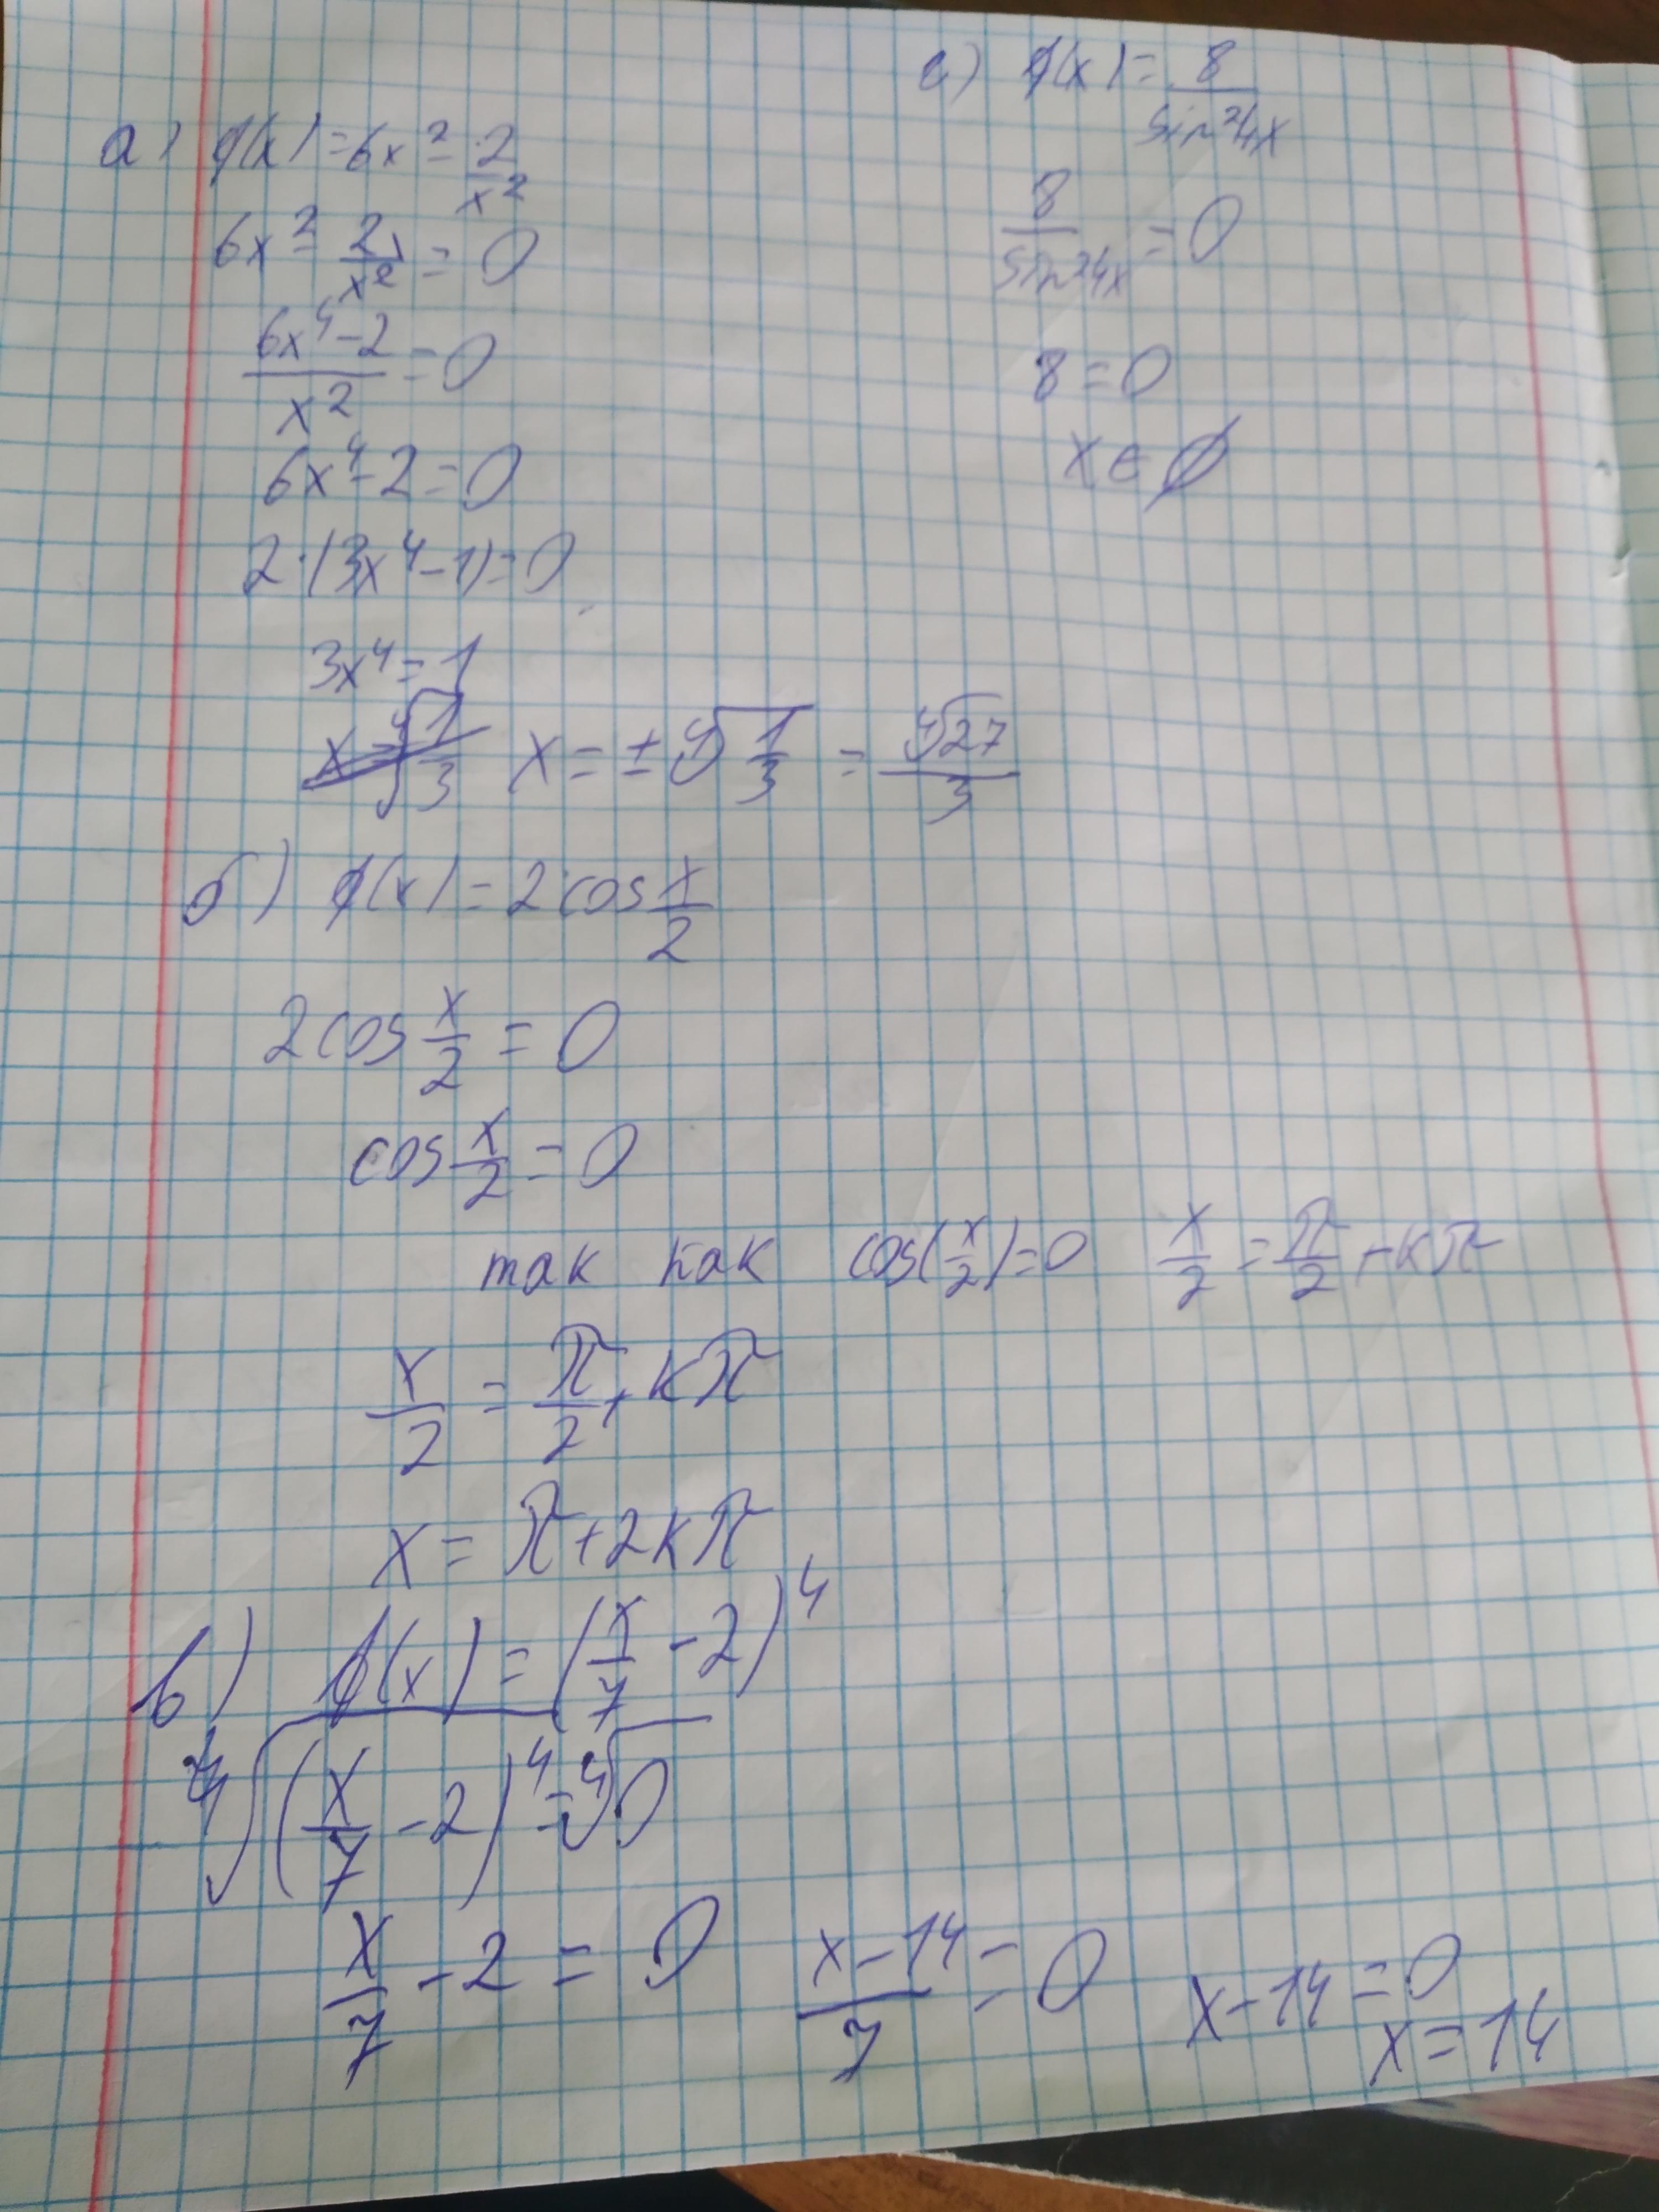 а) f(x)=6x²-2/x²
6x²-2/x²=0
(6x⁴-2)/x²=0
6x⁴-2=0
2·(3x⁴-1)=0
3x⁴=1
x=±⁴√(1/3)=⁴√27/3
б) f(x)=2cos x/2
2cos x/2=0
cos x/2=0
так как cos(x/2)=0 x/2=π/2+kπ
x/2=π/2+kπ
x=π+2kπ
в) f(x)=(x/7-2)⁴
⁴√(x/7-2)⁴=⁴√0
x/7-2=0 (x-14)/7=0 x-14=0
x=14
е) f(x)=8/sin²4x
8/sin²4x=0
8=0
x∈∅